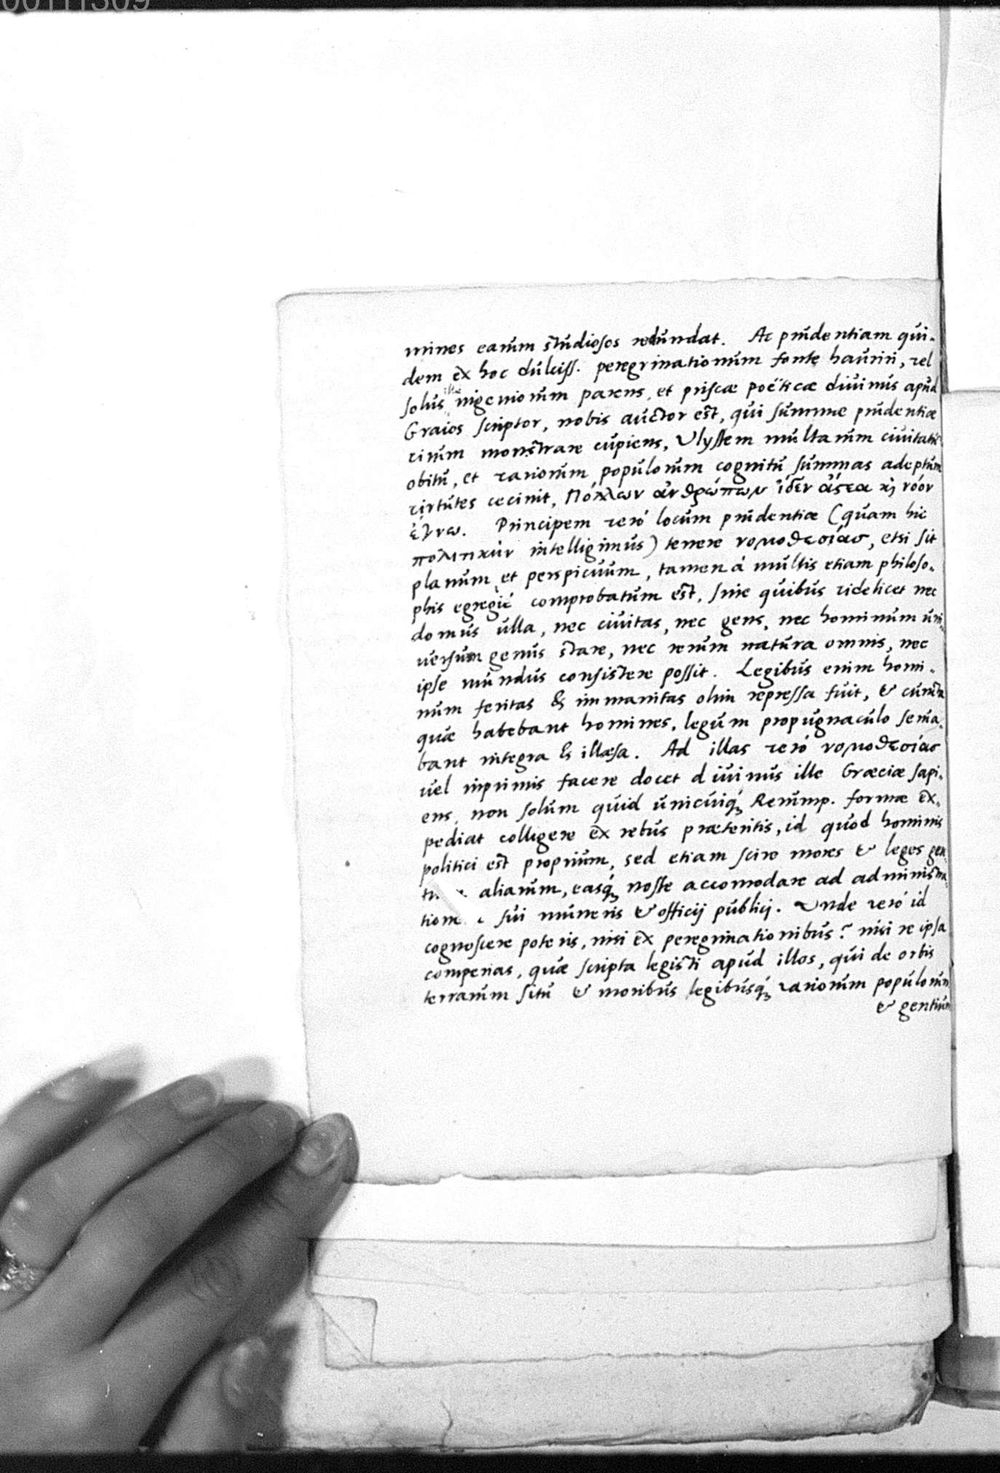 00111309
mines earum studiosos redundat. Ac prudentiam qui-
dem ex hoc dulciss. peregrinationum fonte hauriri, vel
solus ille ingeniorum parens, et priscæ poëticæ divinus apud
Graios scriptor, nobis auctor est, qui summe prudentiæ
virum monstrare cupiens, Ulyssem multarum civitatū
obitu, et variorum populorum cognitu summas adeptum
virtutes cecinit, Πόλλων ἀνθρώπων ἴδεν ἄςεα κὶ νόον
ἔγνω. Principem verò locum prudentiæ (quam hic
πολιτικὴν intelligimus) tenere νομοθεσίας, etsi sit
planum et perspicuum, tamen à multis etiam philoso-
phis egregiè comprobatum est, sine quibus videlicet nec
domus ulla, nec civitas, nec gens, nec hominum uni-
versum genus stare, nec rerum natura omnis, nec
ipse mundus consistere possit. Legibus enim homi-
num feritas & immanitas olim repressa fuit, & cuncta
quæ habebant homines, legum propugnaculo serua-
bant integra & illæsa. Ad illas verò νομοθεσίας
vel inprimis facere docet divinus ille Græciæ sapi-
ens, non solum quid unicuiq; Rerump. formæ ex-
pediat colligere ex rebus præteritis, id quod hominis
politici est proprium, sed etiam scire mores & leges gen-
aliarum, easq; nosse accomodare ad administra-
tion sui muneris & officij publici. Unde verò id
cognoscere poteris, nisi ex peregrinationibus? nisi re ipsa
comperias, quæ scripta legisti apud illos, qui de orbis
terrarum situ & moribus legibusq; variorum populorum
& gentium